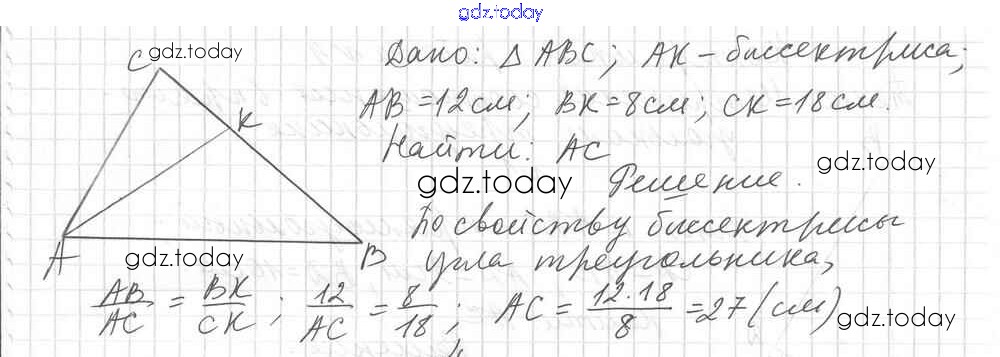 gdz.today
C gdz.today Дано: △ ABC; AK - биссектриса;
AB = 12 см; BK = 8 см; CK = 18 см.
K Найти: AC
gdz.today
gdz.today Решение.
По свойству биссектрисы
A B
gdz.today угла треугольника,
AB/AC = BK/CK; 12/AC = 8/18; AC = 12·18/8 = 27 (см)
gdz.today